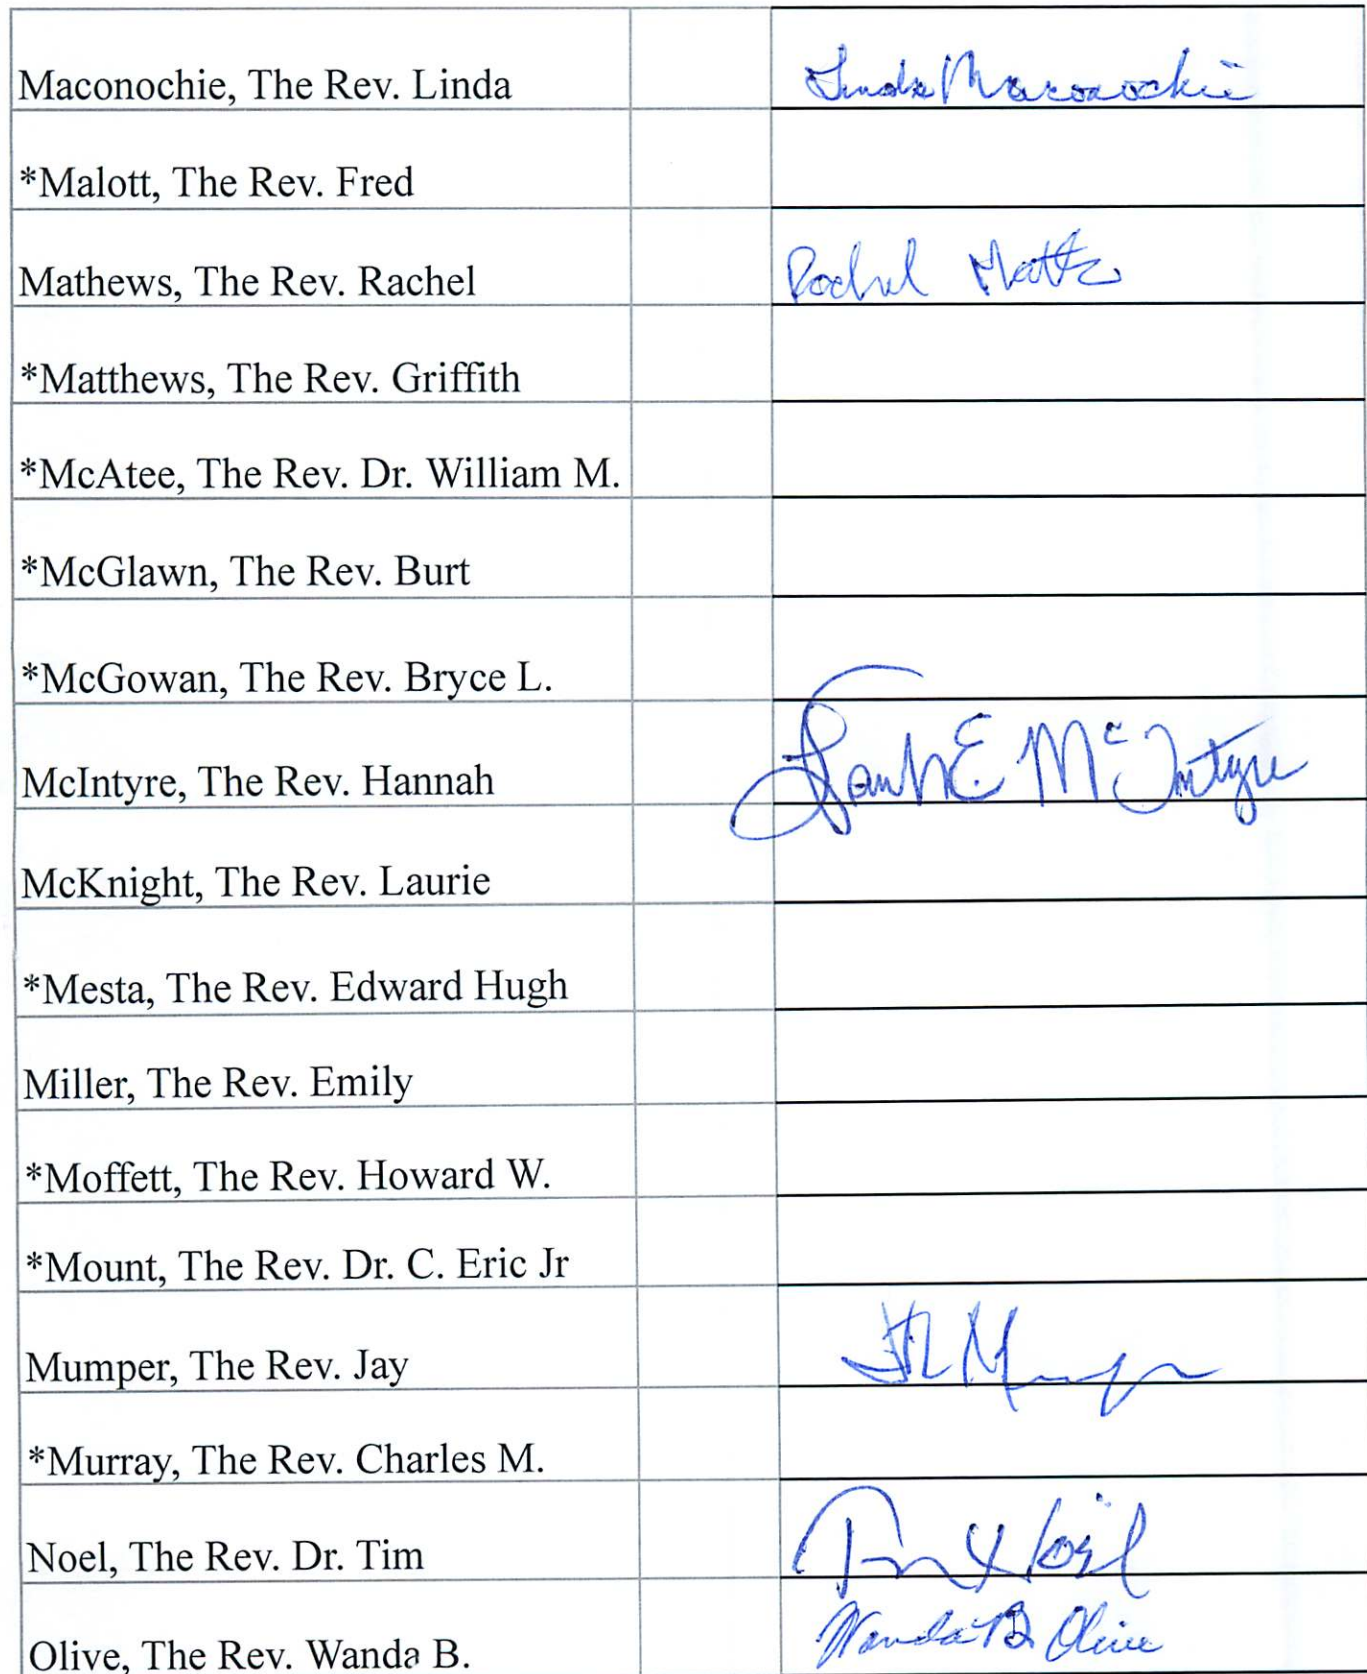 Maconochie, The Rev. Linda Linda Maconochie
*Malott, The Rev. Fred
Mathews, The Rev. Rachel Rachel
*Matthews, The Rev. Griffith
*McAtee, The Rev. Dr. William M.
*McGlawn, The Rev. Burt
*McGowan, The Rev. Bryce L.
McIntyre, The Rev. Hannah E McIntyre
McKnight, The Rev. Laurie
*Mesta, The Rev. Edward Hugh
Miller, The Rev. Emily
*Moffett, The Rev. Howard W.
*Mount, The Rev. Dr. C. Eric Jr
Mumper, The Rev. Jay
*Murray, The Rev. Charles M.
Noel, The Rev. Dr. Tim Tim Noël
Olive, The Rev. Wanda B. Wanda B. Olive